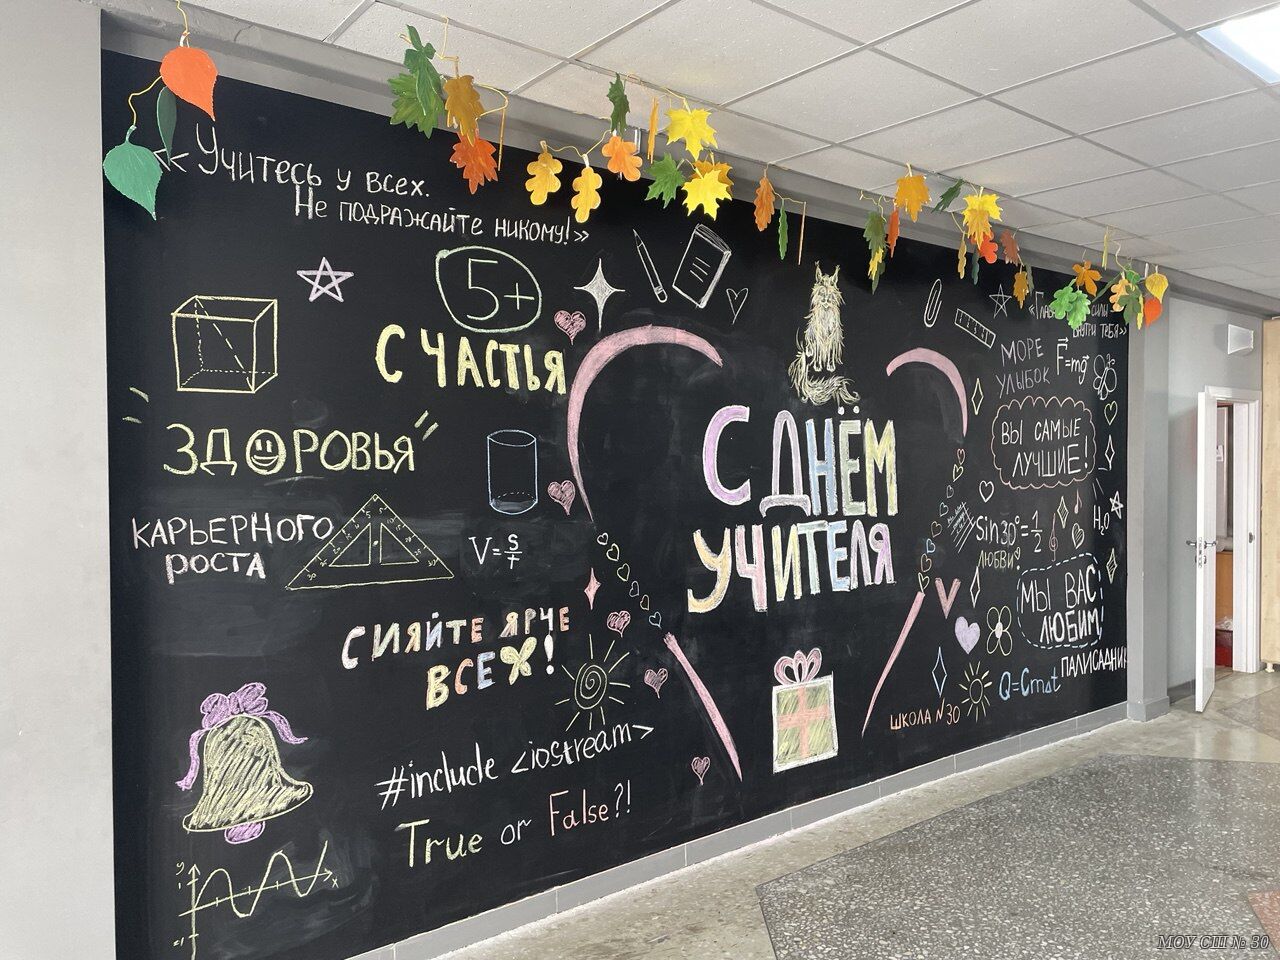 « Учитесь у всех.
Не подражайте никому!»
5+
СЧАСТЬЯ
ЗДОРОВЬЯ
КАРЬЕРНОГО
РОСТА
V=S/t
СИЯЙТЕ ЯРЧЕ
ВСЕХ!
#include <iostream>
True or False?!
y
x
1
-1
С ДНЁМ
УЧИТЕЛЯ
внутри тебя»
МОРЕ
УЛЫБОК
F=mg
ВЫ САМЫЕ
ЛУЧШИЕ!
Sin30°=1/2
ЛЮБВИ!
H₂O
МЫ ВАС
ЛЮБИМ!
Q=Cm∆t
ШКОЛА №30
МОУ СШ № 30